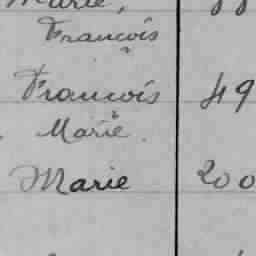 Marie,
François
François 49
Marie
Marie 200